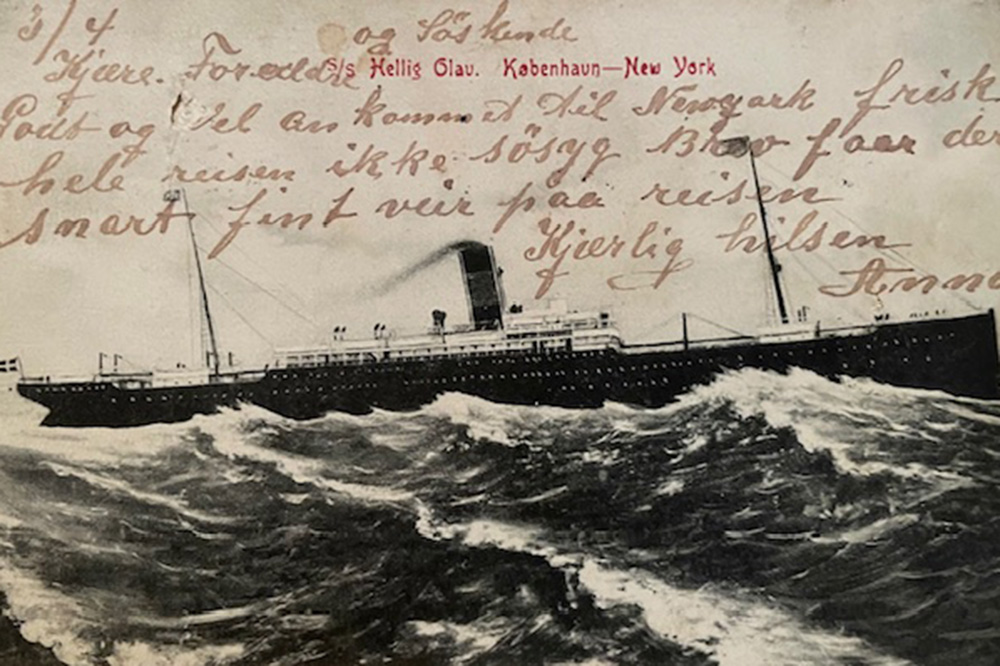 3/4
og Söskende
Kjære Forældre
S/s Hellig Olav. København—New York
Godt og Vel an kommet til Newyork frisk
hele reisen ikke sösyg Brev faar der
snart fint veir paa reisen
Kjærlig hilsen
Anna